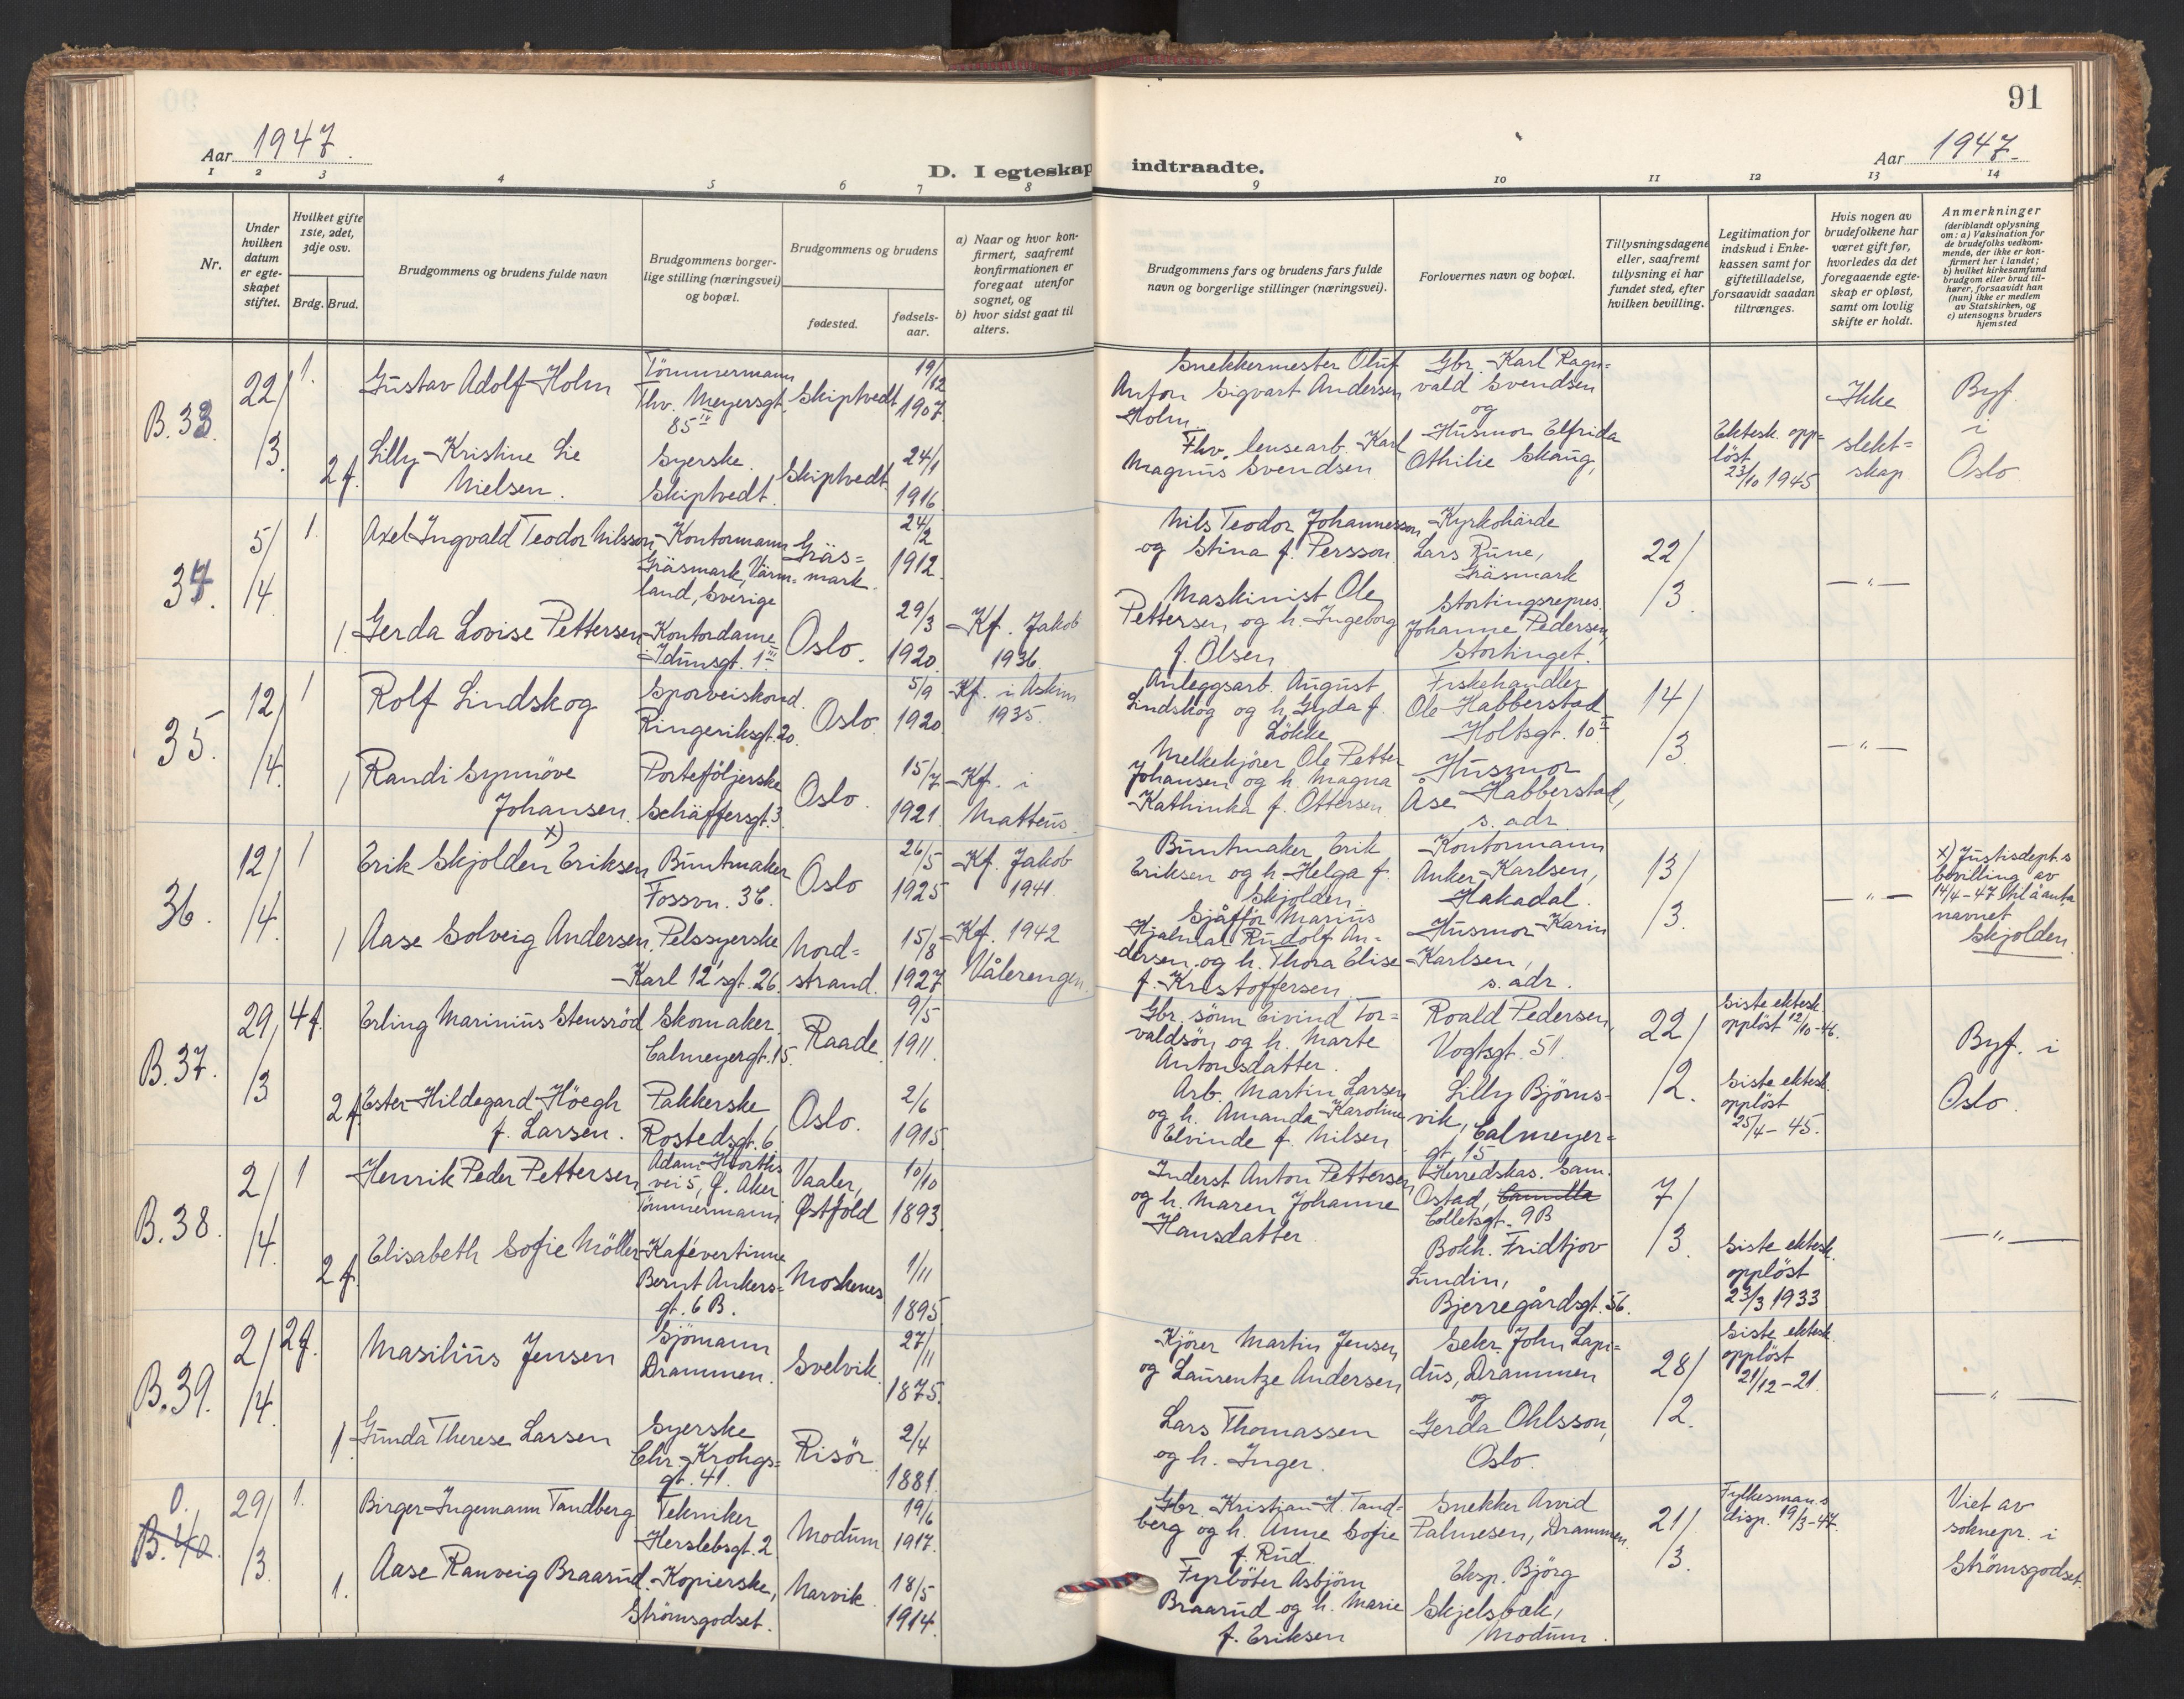 91
Aar 1947.
Aar 1947.
D. I egteskap indtraadte.
1 2 3 4 5 6 7 8 9 10 11 12 13 14
Nr.
Under hvilken datum er egteskapet stiftet.
Hvilket gifte 1ste, 2det, 3dje osv.
Brdg. Brud.
Brudgommens og brudens fulde navn
Brudgommens borgerlige stilling (næringsvei) og bopæl.
Brudgommens og brudens
fødested.
fødsels-aar.
a) Naar og hvor konfirmert, saafremt konfirmationen er foregaat utenfor sognet, og
b) hvor sidst gaat til alters.
Brudgommens fars og brudens fars fulde navn og borgerlige stillinger (næringsvei).
Forlovernes navn og bopæl.
Tillysningsdagene eller, saafremt tillysning ei har fundet sted, efter hvilken bevilling.
Legitimation for indskud i Enkekassen samt for giftetilladelse, forsaavidt saadan tiltrænges.
Hvis nogen av brudefolkene har været gift før, hvorledes da det foregaaende egteskap er opløst, samt om lovlig skifte er holdt.
Anmerkninger
(deriblandt oplysning om: a) Vaksination for de brudefolks vedkommende, der ikke er konfirmert her i landet;
b) hvilket kirkesamfund brudgom eller brud tilhører, forsaavidt han (hun) ikke er medlem av Statskirken, og
c) utensogns bruders hjemsted
B. 33.
22/3.
1.
Gustav Adolf Holm
Tömmermann
Thv. Meyersgt. 85 IV
Skiptvedt
19/12 1907.
Snekkermester Oluf
Anton Sigvart Andersen
Holm
Gbr. Karl Ragn=
vald Svendsen
og
Ikke
slekt=
skap
Byf.
i
Oslo
2 f.
Lilly Kristine Lie
Nielsen.
Syerske.
Skiptvedt.
Skiptvedt.
24/1 1916
Fhv. lensearb. Karl
Magnus Svendsen
Husmor Elfrida
Othilie Skaug,
Ektesk. opp=
löst
23/10 1945
34.
5/4
1.
Axel Ingvald Teodor Nilsson
Kontormann
Gräsmark, Värm=
land, Sverige
Gräs=
mark.
24/2 1912.
Nils Teodor Johannesson
og Stina f. Persson
Kyrkohärde
Lars Rune,
Gräsmark
22/3.
— " —
1
Gerda Lovise Pettersen
Kontordame
Idunsgt. 1 III
Oslo.
29/3 1920.
Kf. Jakob
1936.
Maskinist Ole
Pettersen og h. Ingeborg
f. Olsen
Stortingsrepres.
Johanne Pedersen,
Stortinget.
35.
12/4.
1
Rolf Lindskog
Sporveiskond.
Ringeriksgt. 20.
Oslo
5/9 1920
Kf. i Askim
1935.
Anleggsarb. August
Lindskog og h. Gyda f.
Lökke
Fiskehandler
Ole Habberstad
Holtsgt. 10 III
14/3.
— " —
1
Randi Synnöve
Johansen.
Porteföljerske
Schäffersgt. 3
Oslo.
15/7 1921.
Kf. i
Matteus.
Melkekjörer Ole Petter
Johansen og h. Magna
Kathinka f. Ottersen
Husmor
Åse Habberstad,
s. adr.
36.
12/4.
1
Erik Skjolden x) Eriksen
Buntmaker
Fossvn. 3C.
Oslo
26/5 1925
Kf. Jakob
1941.
Buntmaker Erik
Eriksen og h. Helga f.
Skjolden.
Kontormann
Anker Karlsen,
Hakadal.
13/3.
— " —
x) Justisdept.s
bevilling av
14/4-47 til å anta
navnet
Skjolden
1
Aase Solveig Andersen
Pelssyerske
Karl 12'sgt. 26.
Nord=
strand.
15/8 1927
Kf. 1942
Vålerengen.
Sjåfför Marius
Hjalmar Rudolf An=
dersen og h. Thora Elise
f. Kristoffersen
Husmor Karin
Karlsen,
s. adr.
B. 37.
29/3
4 f.
Erling Marinius Stensröd
Skomaker
Calmeyergt. 15.
Raade
9/5 1911.
Gbr. sönn Eivind Tor=
valdsön og h. Marte
Antonsdatter.
Roald Pedersen,
Vogtsgt. 51.
22/2.
Siste ektesk.
opplöst 12/10-46.
Byf. i
Oslo.
2 f.
Ester Hildegard Höegh
f. Larsen.
Pakkerske
Rostedsgt. 6
Oslo.
2/6 1915.
Arb. Martin Larsen
og h. Amanda Karoline
Elvinde f. Nilsen
Lilly Björns=
vik, Calmeyer=
gt. 15
Siste ektesk.
opplöst
25/4-45.
B. 38.
2/4.
1
Henrik Peder Pettersen
Adam Hiorths
vei 5, Ö. Aker
Tömmermann
Vaaler,
Østfold
10/10 1893.
Inderst Anton Pettersen
og h. Maren Johanne
Hansdatter
Herredskas. Sam.
Ostad,
Colletsgt. 9B
7/3.
— " —
2 f.
Elisabeth Sofie Möller
Kafévertinne
Bernt Ankers=
gt. 6 B.
Moskenes
1/11 1895.
Bokh. Fridtjov
Lundin,
Bjerregårdsgt. 56.
Siste ektesk.
opplöst
23/3 1933
B. 39.
2/4
2 f.
Masilius Jensen
Sjömann
Drammen.
Svelvik
27/11 1875.
Kjörer Martin Jensen
og Laurentze Andersen
Sekr. John Lapi=
dus, Drammen
og
28/2.
Siste ektesk.
opplöst
21/12-21.
— " —
1
Gunda Therese Larsen
Syerske
Chr. Krohgs=
gt. 41.
Risör
2/4 1881.
Lars Thomassen
og h. Inger.
Gerda Ohlsson,
Oslo.
0.
B. 40.
29/3
1.
Birger Ingemann Tandberg
Tekniker
Herslebsgt. 2
Modum
19/6 1917.
Gbr. Kristian H. Tand=
berg og h. Anne Sofie
f. Rud.
Snekker Arvid
Palmesen, Drammen.
21/3.
Fylkesman.s
disp. 19/3-47.
Viet av
soknepr. i
Strömsgodset.
1.
Aase Ranveig Braarud.
Kopierske,
Strömsgodset.
Narvik
18/5 1914.
Fyrböter Asbjörn
Braarud og h. Marie
f. Eriksen
Eksp. Björg
Skjelsbæk,
Modum.